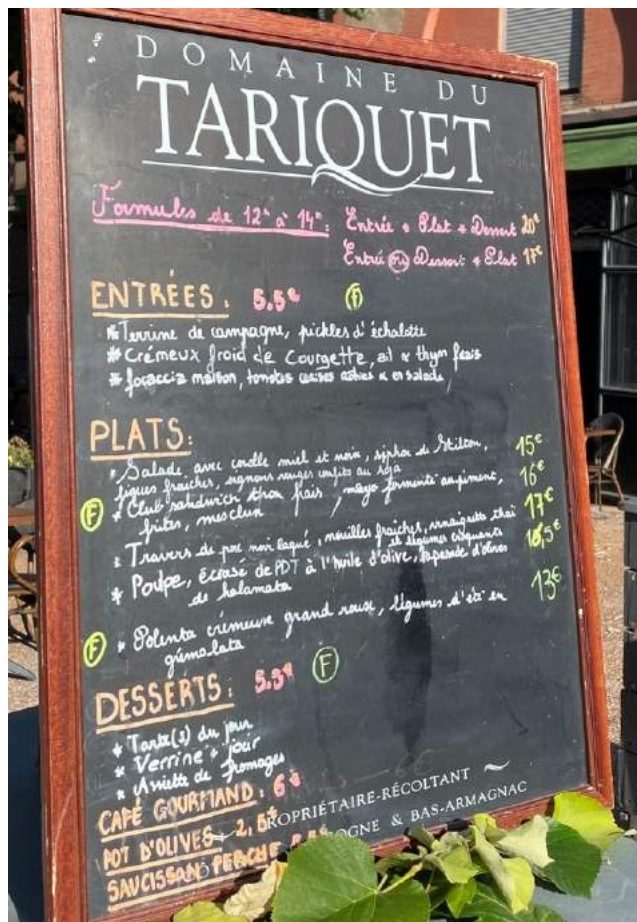 DOMAINE DU
TARIQUET
Formules de 12h à 14h: Entrée + Plat + Dessert 20€
Entrée ou Dessert + Plat 17€
ENTRÉES: 5.5€ F
* Terrine de campagne, pickles d'échalotte
* Crémeux froid de courgette, ail & thym frais
* focaccia maison, tomates cerises & en salade
PLATS:
* Salade, avec miel et noix, siphon de Stilton, 15€
figues fraiches, oignons rouges confits au soja
F * Club sandwich thon frais, mayo fermenté au piment, 16€
frites, mesclun
* Travers de porc noir laqué, nouilles fraiches, vinaigrette thaï 17€
et légumes croquants
* Poulpe, écrasé de PDT à l'huile d'olive, tapenade d'olives ,5€
de kalamata
F * Polenta crémeuse grand roux, légumes d'été en 13€
gémolata
DESSERTS: 5.5€ F
* Tarte(s) du jour
* Verrine + jour
* Assiette de fromages
CAFÉ GOURMAND: 6€
POT D'OLIVES 2,5€
SAUCISSON PERCHE
ROPRIÉTAIRE-RÉCOLTANT
OGNE & BAS-ARMAGNAC